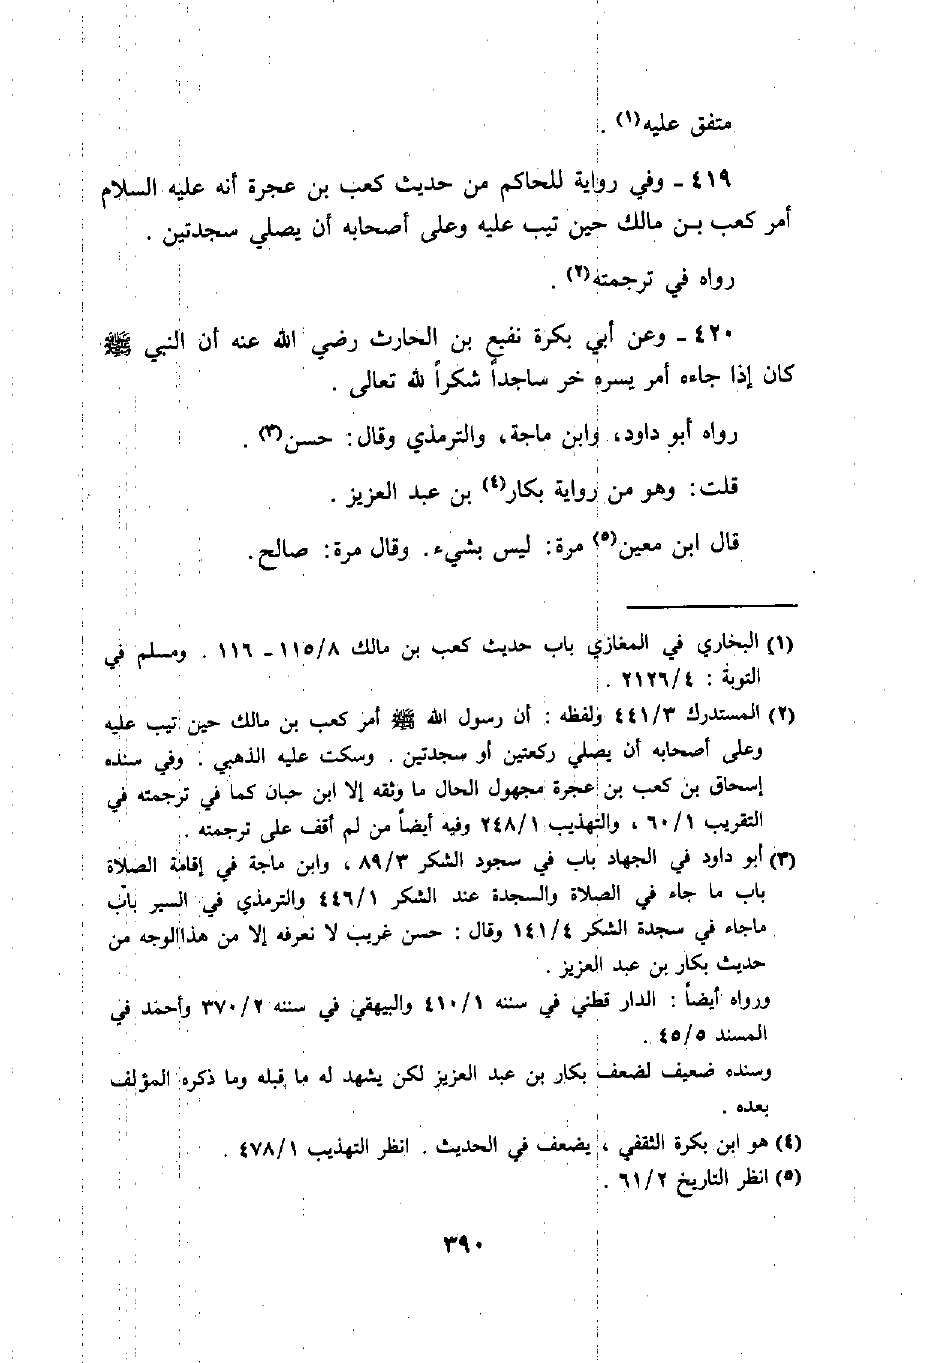 متفق عليه(١) .
٤١٩ ـ وفي رواية للحاكم من حديث كعب بن عجرة أنه عليه السلام
أمر كعب بـن مالك حين تيب عليه وعلى أصحابه أن يصلي سجدتين .
رواه في ترجمته(٢) .
٤٢٠ ـ وعن أبي بكرة نفيع بن الحارث رضي الله عنه أن النبي ﷺ
كان إذا جاءه أمر يسره خر ساجداً شكراً لله تعالى .
رواه أبو داود، وابن ماجة، والترمذي وقال: حسن(٣) .
قلت: وهو من رواية بكار(٤) بن عبد العزيز .
قال ابن معين(٥) مرة: ليس بشيء. وقال مرة: صالح.
(١) البخاري في المغازي باب حديث كعب بن مالك ١١٥/٨ ـ ١١٦ . ومسلم في
التوبة : ٢١٢٦/٤ .
(٢) المستدرك ٤٤١/٣ ولفظه : أن رسول الله ﷺ أمر كعب بن مالك حين تيب عليه
وعلى أصحابه أن يصلي ركعتين أو سجدتين . وسكت عليه الذهبي . وفي سنده
إسحاق بن كعب بن عجرة مجهول الحال ما وثقه إلا ابن حبان كما في ترجمته في
التقريب ٦٠/١ ، والتهذيب ٢٤٨/١ وفيه أيضاً من لم أقف على ترجمته .
(٣) أبو داود في الجهاد باب في سجود الشكر ٨٩/٣ ، وابن ماجة في إقامة الصلاة
باب ما جاء في الصلاة والسجدة عند الشكر ٤٤٦/١ والترمذي في السير باب
ماجاء في سجدة الشكر ١٤١/٤ وقال : حسن غريب لا نعرفه إلا من هذا الوجه من
حديث بكار بن عبد العزيز .
ورواه أيضاً : الدار قطني في سننه ٤١٠/١ والبيهقي في سننه ٣٧٠/٢ وأحمد في
المسند ٤٥/٥ .
وسنده ضعيف لضعف بكار بن عبد العزيز لكن يشهد له ما قبله وما ذكره المؤلف
بعده .
(٤) هو ابن بكرة الثقفي ، يضعف في الحديث . انظر التهذيب ٤٧٨/١ .
(٥) انظر التاريخ ٦١/٢ .
٣٩٠